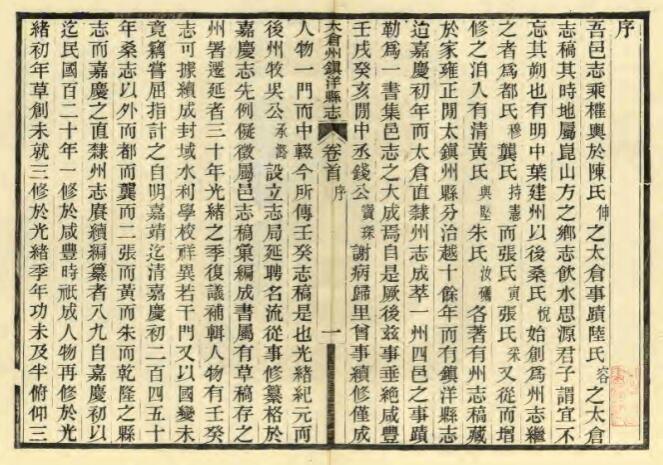 序
吾邑志乘權輿於陳氏伸之太倉事蹟陸氏容之太倉
志稿其時地屬崑山方之鄉志飲水思源君子謂宜不
忘其朔也有明中葉建州以後桑氏悅始創為州志繼
之者為都氏穆龔氏持憲而張氏寅張氏采又從而增
修之洎人有清黃氏與堅朱氏汝礪各著有州志稿藏
於家雍正閒太鎮州縣分治越十餘年而有鎮洋縣志
迨嘉慶初年而太倉直隸州志成萃一州四邑之事蹟
勒為一書集邑志之大成焉自是厥後茲事垂絕咸豐
壬戌癸亥閒中丞錢公寶琛謝病歸里曾事續修僅成
太倉州鎮洋縣志 卷首 序 一
人物一門而中輟今所傳壬癸志稿是也光緒紀元而
後州牧吳公承潞設立志局延聘名流從事修纂格於
嘉慶志先例儗徵屬邑志稿彙編成書屬有草稿存之
州署遷延者三十年光緒之季復議補輯人物有壬癸
志可據續成封域水利學校祥異若干門又以國變未
竟竊嘗屈指計之自明嘉靖迄清嘉慶初二百四五十
年桑志以外而都而龔而二張而黃而朱而乾隆之縣
志而嘉慶之直隸州志賡續編纂者八九自嘉慶初以
迄民國百二十年一修於咸豐時祇成人物再修於光
緒初年草創未就三修於光緒季年功未及半俯仰三